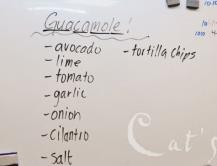 Guacamole!
- avocodo
- lime
- tomato
- garlic
- onion
- cilantro
- salt
- tortilla chips
Cat's